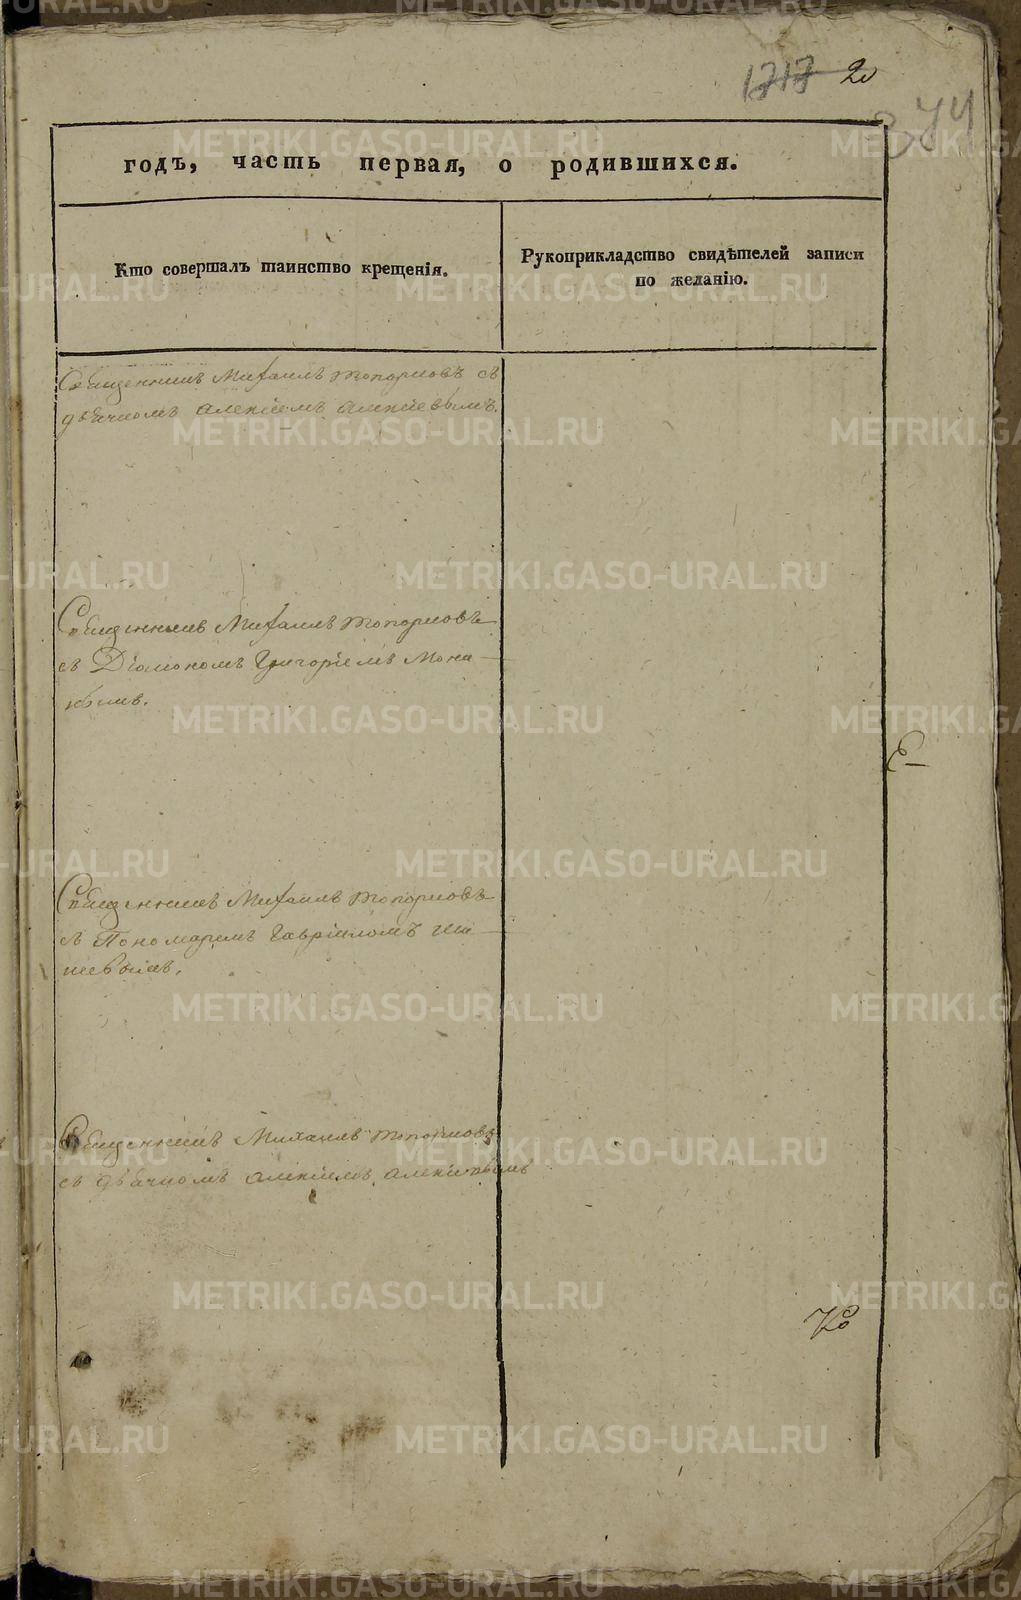 1717 20
344
годъ, часть первая, о родившихся.
Кто совершалъ таинство крещенія.
Рукоприкладство свидѣтелей записи
по желанію.
Священникъ Михаилъ Топорковъ съ
дьячкомъ Алексіемъ Алексіевымъ.
Священникъ Михаилъ Топорковъ
съ Діакономъ Григоріемъ Мона
ковымъ.
Священникъ Михаилъ Топорковъ
съ Пономаремъ Гавріиломъ
Священникъ Михаилъ Топорковъ
съ дьячкомъ Алексіемъ Алексіевымъ
METRIKI.GASO-URAL.RU